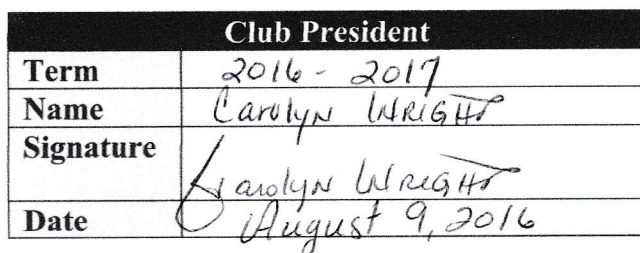 Club President
Term 2016 - 2017
Name Carolyn WRIGHT
Signature Carolyn WRIGHT
Date August 9, 2016